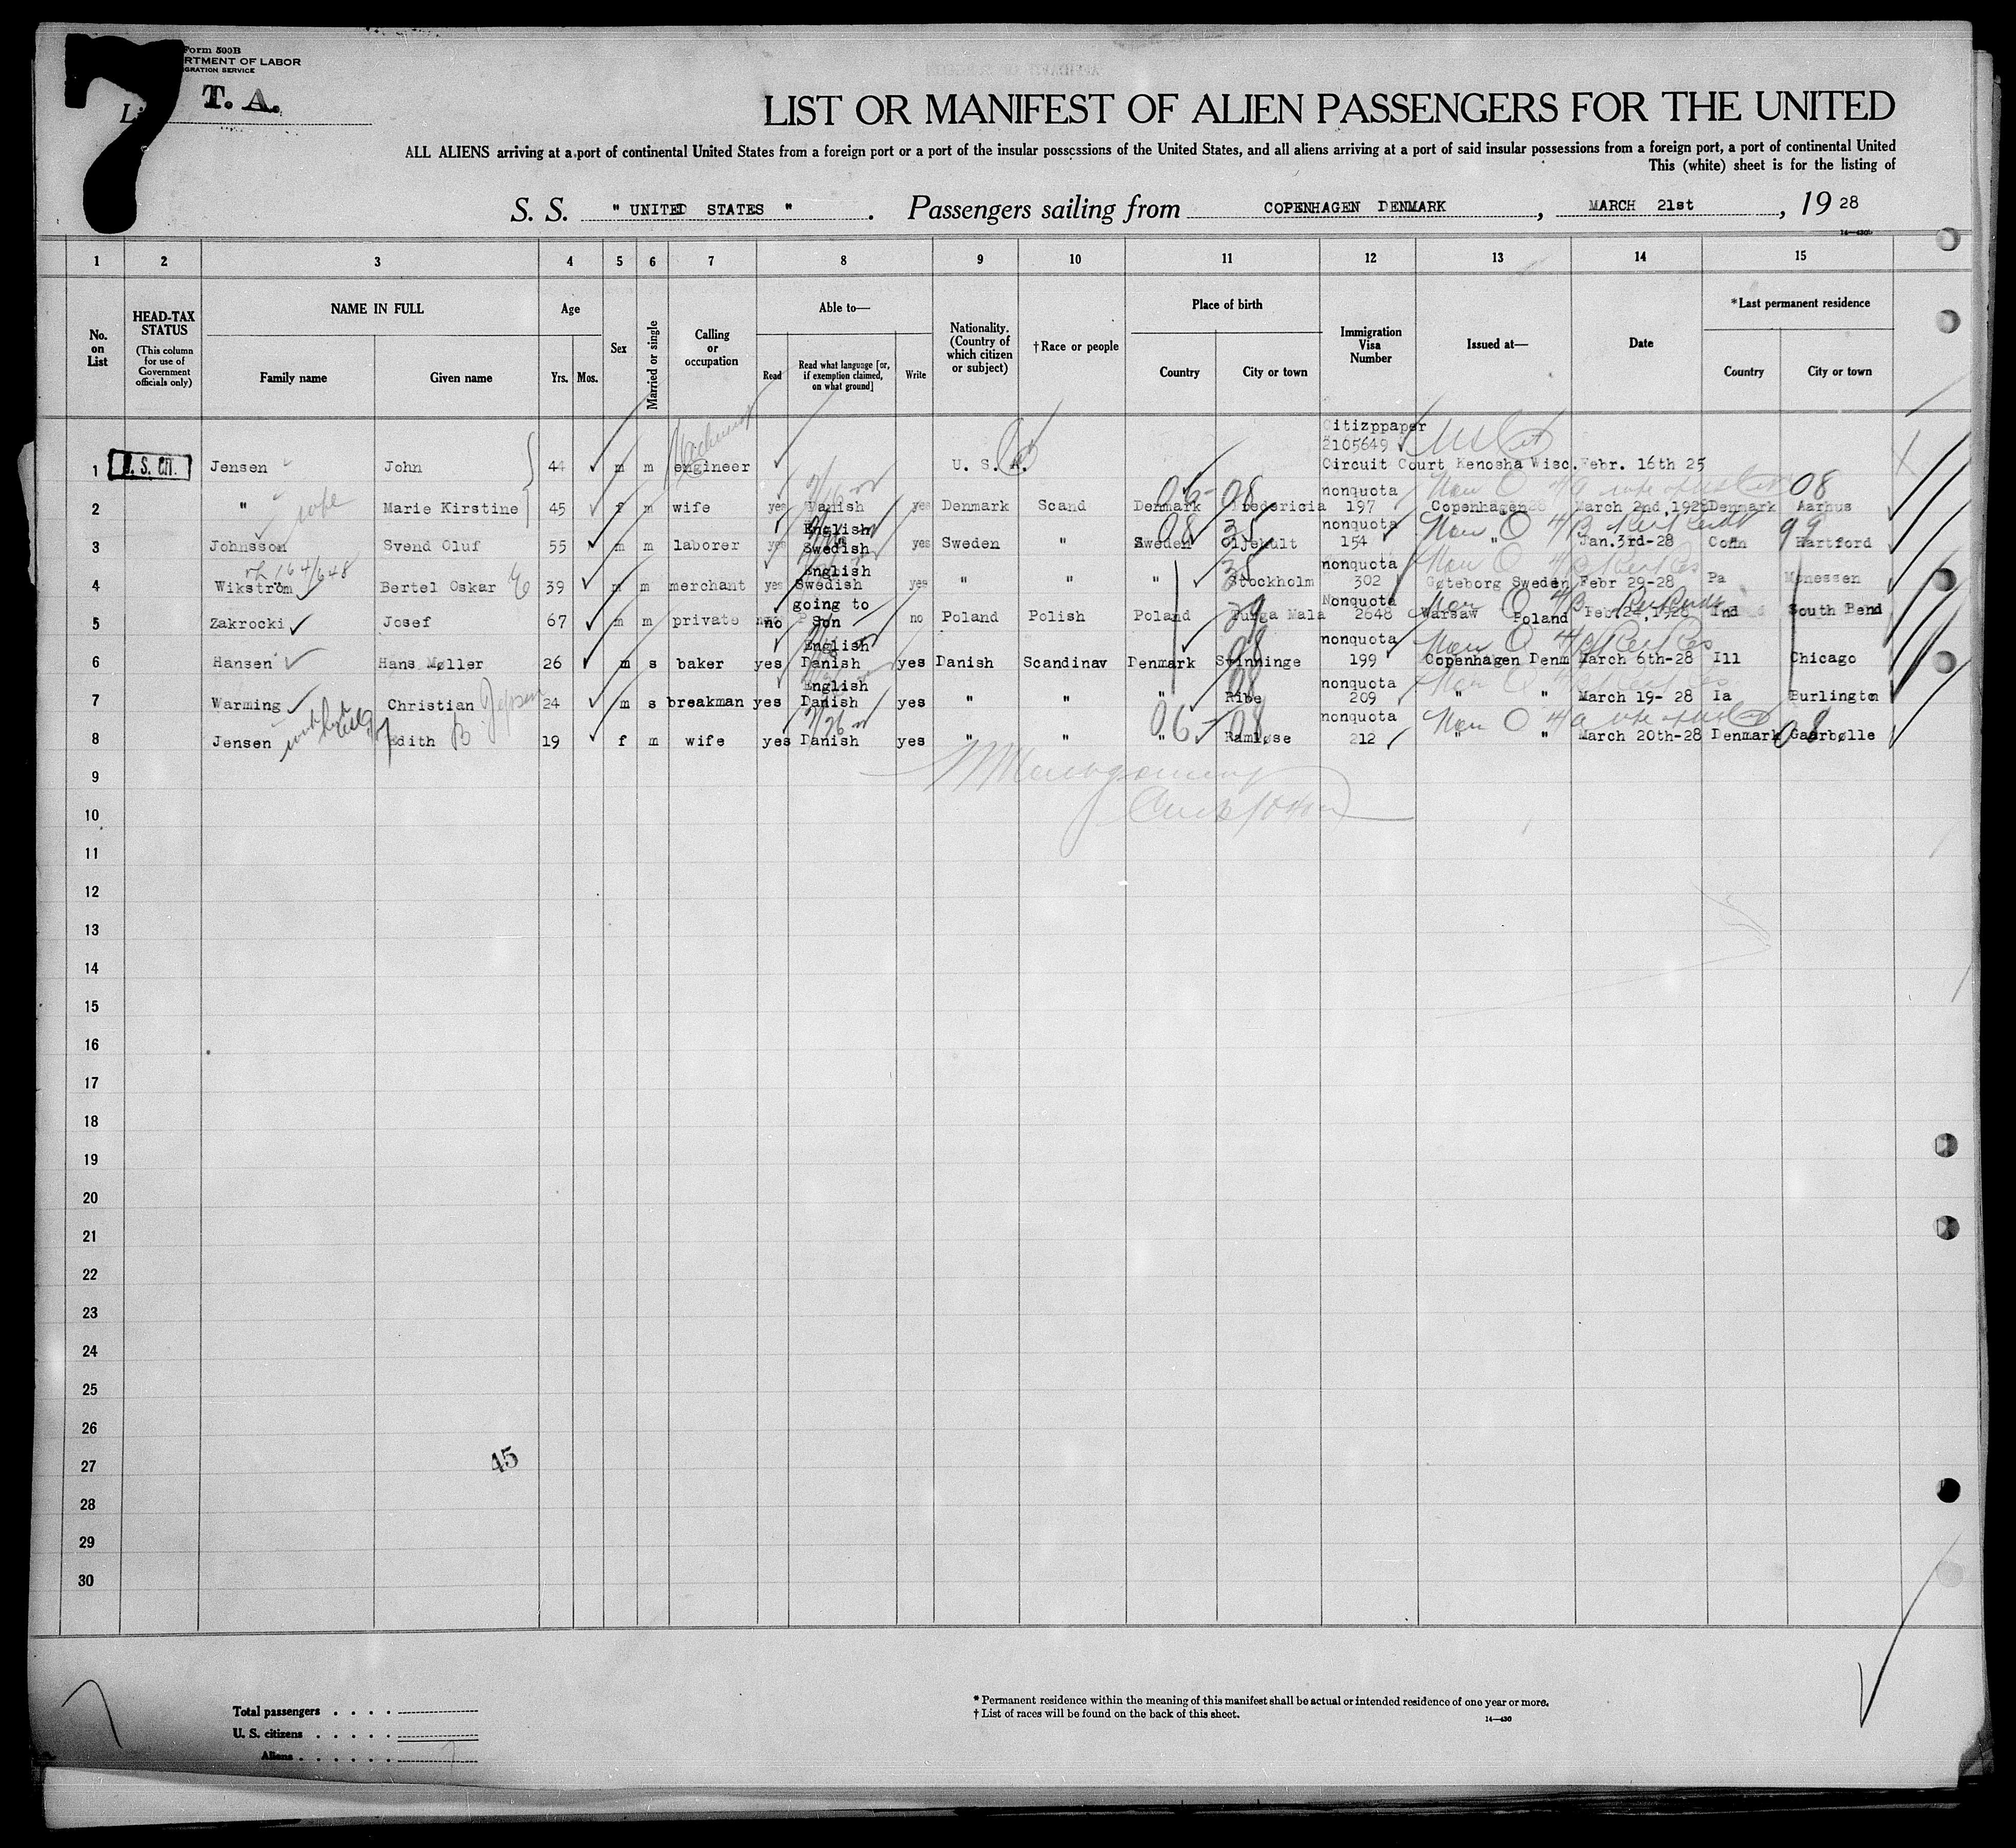 7
Form 500B
RTMENT OF LABOR
GRATION SERVICE
T. A.
LIST OR MANIFEST OF ALIEN PASSENGERS FOR THE UNITED
ALL ALIENS arriving at a port of continental United States from a foreign port or a port of the insular possessions of the United States, and all aliens arriving at a port of said insular possessions from a foreign port, a port of continental United
This (white) sheet is for the listing of
S. S. " UNITED STATES " . Passengers sailing from COPENHAGEN DENMARK , MARCH 21st , 19 28
14-430b
1 2 3 4 5 6 7 8 9 10 11 12 13 14 15
No. on List
HEAD-TAX STATUS
(This column for use of Government officials only)
NAME IN FULL
Family name Given name
Age
Yrs. Mos.
Sex
Married or single
Calling or occupation
Able to—
Read
Read what language [or, if exemption claimed, on what ground]
Write
Nationality. (Country of which citizen or subject)
†Race or people
Place of birth
Country City or town
Immigration Visa Number
Issued at—
Date
*Last permanent residence
Country City or town
Citizppaper
2105649
1 U. S. CIT. Jensen John 44 m m engineer U. S. A. Circuit Court Kenosha Wisc. Febr. 16th 25
nonquota
2 " wife Marie Kirstine 45 f m wife yes Danish yes Denmark Scand Denmark Fredericia 197 Copenhagen March 2nd,1928 Denmark Aarhus
06- 08 08
English nonquota
3 Johnsson Svend Oluf 55 m m laborer yes Swedish yes Sweden " Sweden 154 " Jan.3rd-28 Conn Hartford
08 35 99
English nonquota
4 Wikström Bertel Oskar 39 m m merchant yes Swedish yes " " " Stockholm 302 Gøteborg Sweden Febr 29-28 Pa Monessen
going to Nonquota
5 Zakrocki Josef 67 m m private no son no Poland Polish Poland Mala 2648 Warsaw Poland Feb.24,1928 Ind South Bend
English nonquota
6 Hansen Hans Møller 26 m s baker yes Danish yes Danish Scandinav Denmark Svinninge 199 Copenhagen Denm March 6th-28 Ill Chicago
English nonquota
7 Warming Christian 24 m s breakman yes Danish yes " " " Ribe 209 " " March 19- 28 Ia Burlington
nonquota
8 Jensen Edith B 19 f m wife yes Danish yes " " " Ramløse 212 " " March 20th-28 Denmark Gaarbølle
06- 08 08
9
10
11
12
13
14
15
16
17
18
19
20
21
22
23
24
25
26
27
28
29
30
45
Total passengers . . . .
U. S. citizens . . . . .
Aliens . . . . . .
* Permanent residence within the meaning of this manifest shall be actual or intended residence of one year or more.
† List of races will be found on the back of this sheet.
14-430